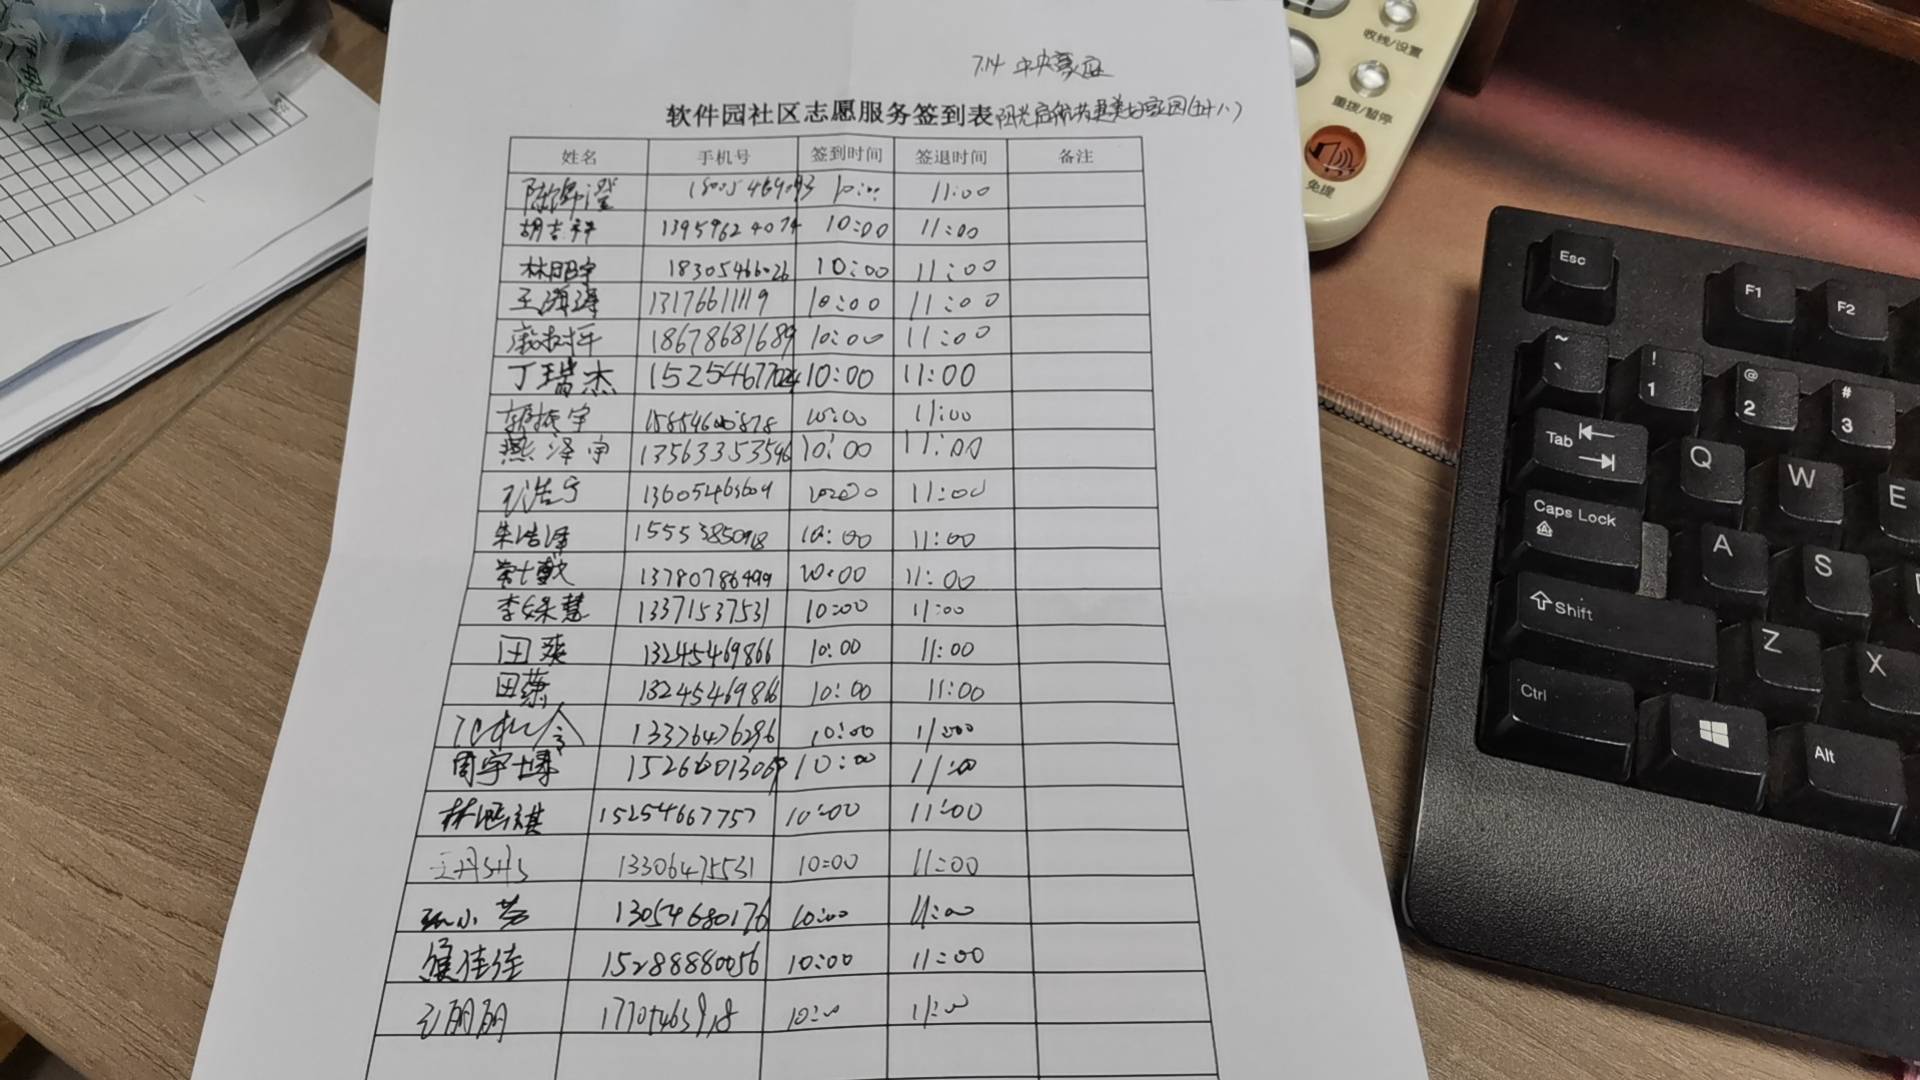 7.14 中央豪庭
软件园社区志愿服务签到表 阳光启航 共建美好家园(五十八)
姓名 手机号 签到时间 签退时间 备注
10:00 11:00
胡吉祥 13959624074 10:00 11:00
林昭宇 18305466026 10:00 11:00
王海涛 13176611119 10:00 11:00
18678681689 10:00 11:00
丁瑞杰 15254677024 10:00 11:00
胡振宇 15854600878 10:00 11:00
燕泽宇 13563353596 10:00 11:00
孔浩宁 13605463609 10:00 11:00
朱浩泽 15553850918 10:00 11:00
常士勋 13780786499 10:00 11:00
李姝慧 13371537531 10:00 11:00
田爽 13245469866 10:00 11:00
田蕊 13245469866 10:00 11:00
13376476296 10:00 11:00
周宇博 15266013069 10:00 11:00
林熙祺 15254667757 10:00 11:00
王丹丹 13306475531 10:00 11:00
孙小芳 13054680176 10:00 11:00
侯佳佳 15288880056 10:00 11:00
王丽丽 10:00 11:00
收线/设置
重拨/暂停
免提
Esc F1 F2
~ ` ! 1 @ 2 # 3
Tab Q W E
Caps Lock A S
Shift Z X
Ctrl Alt